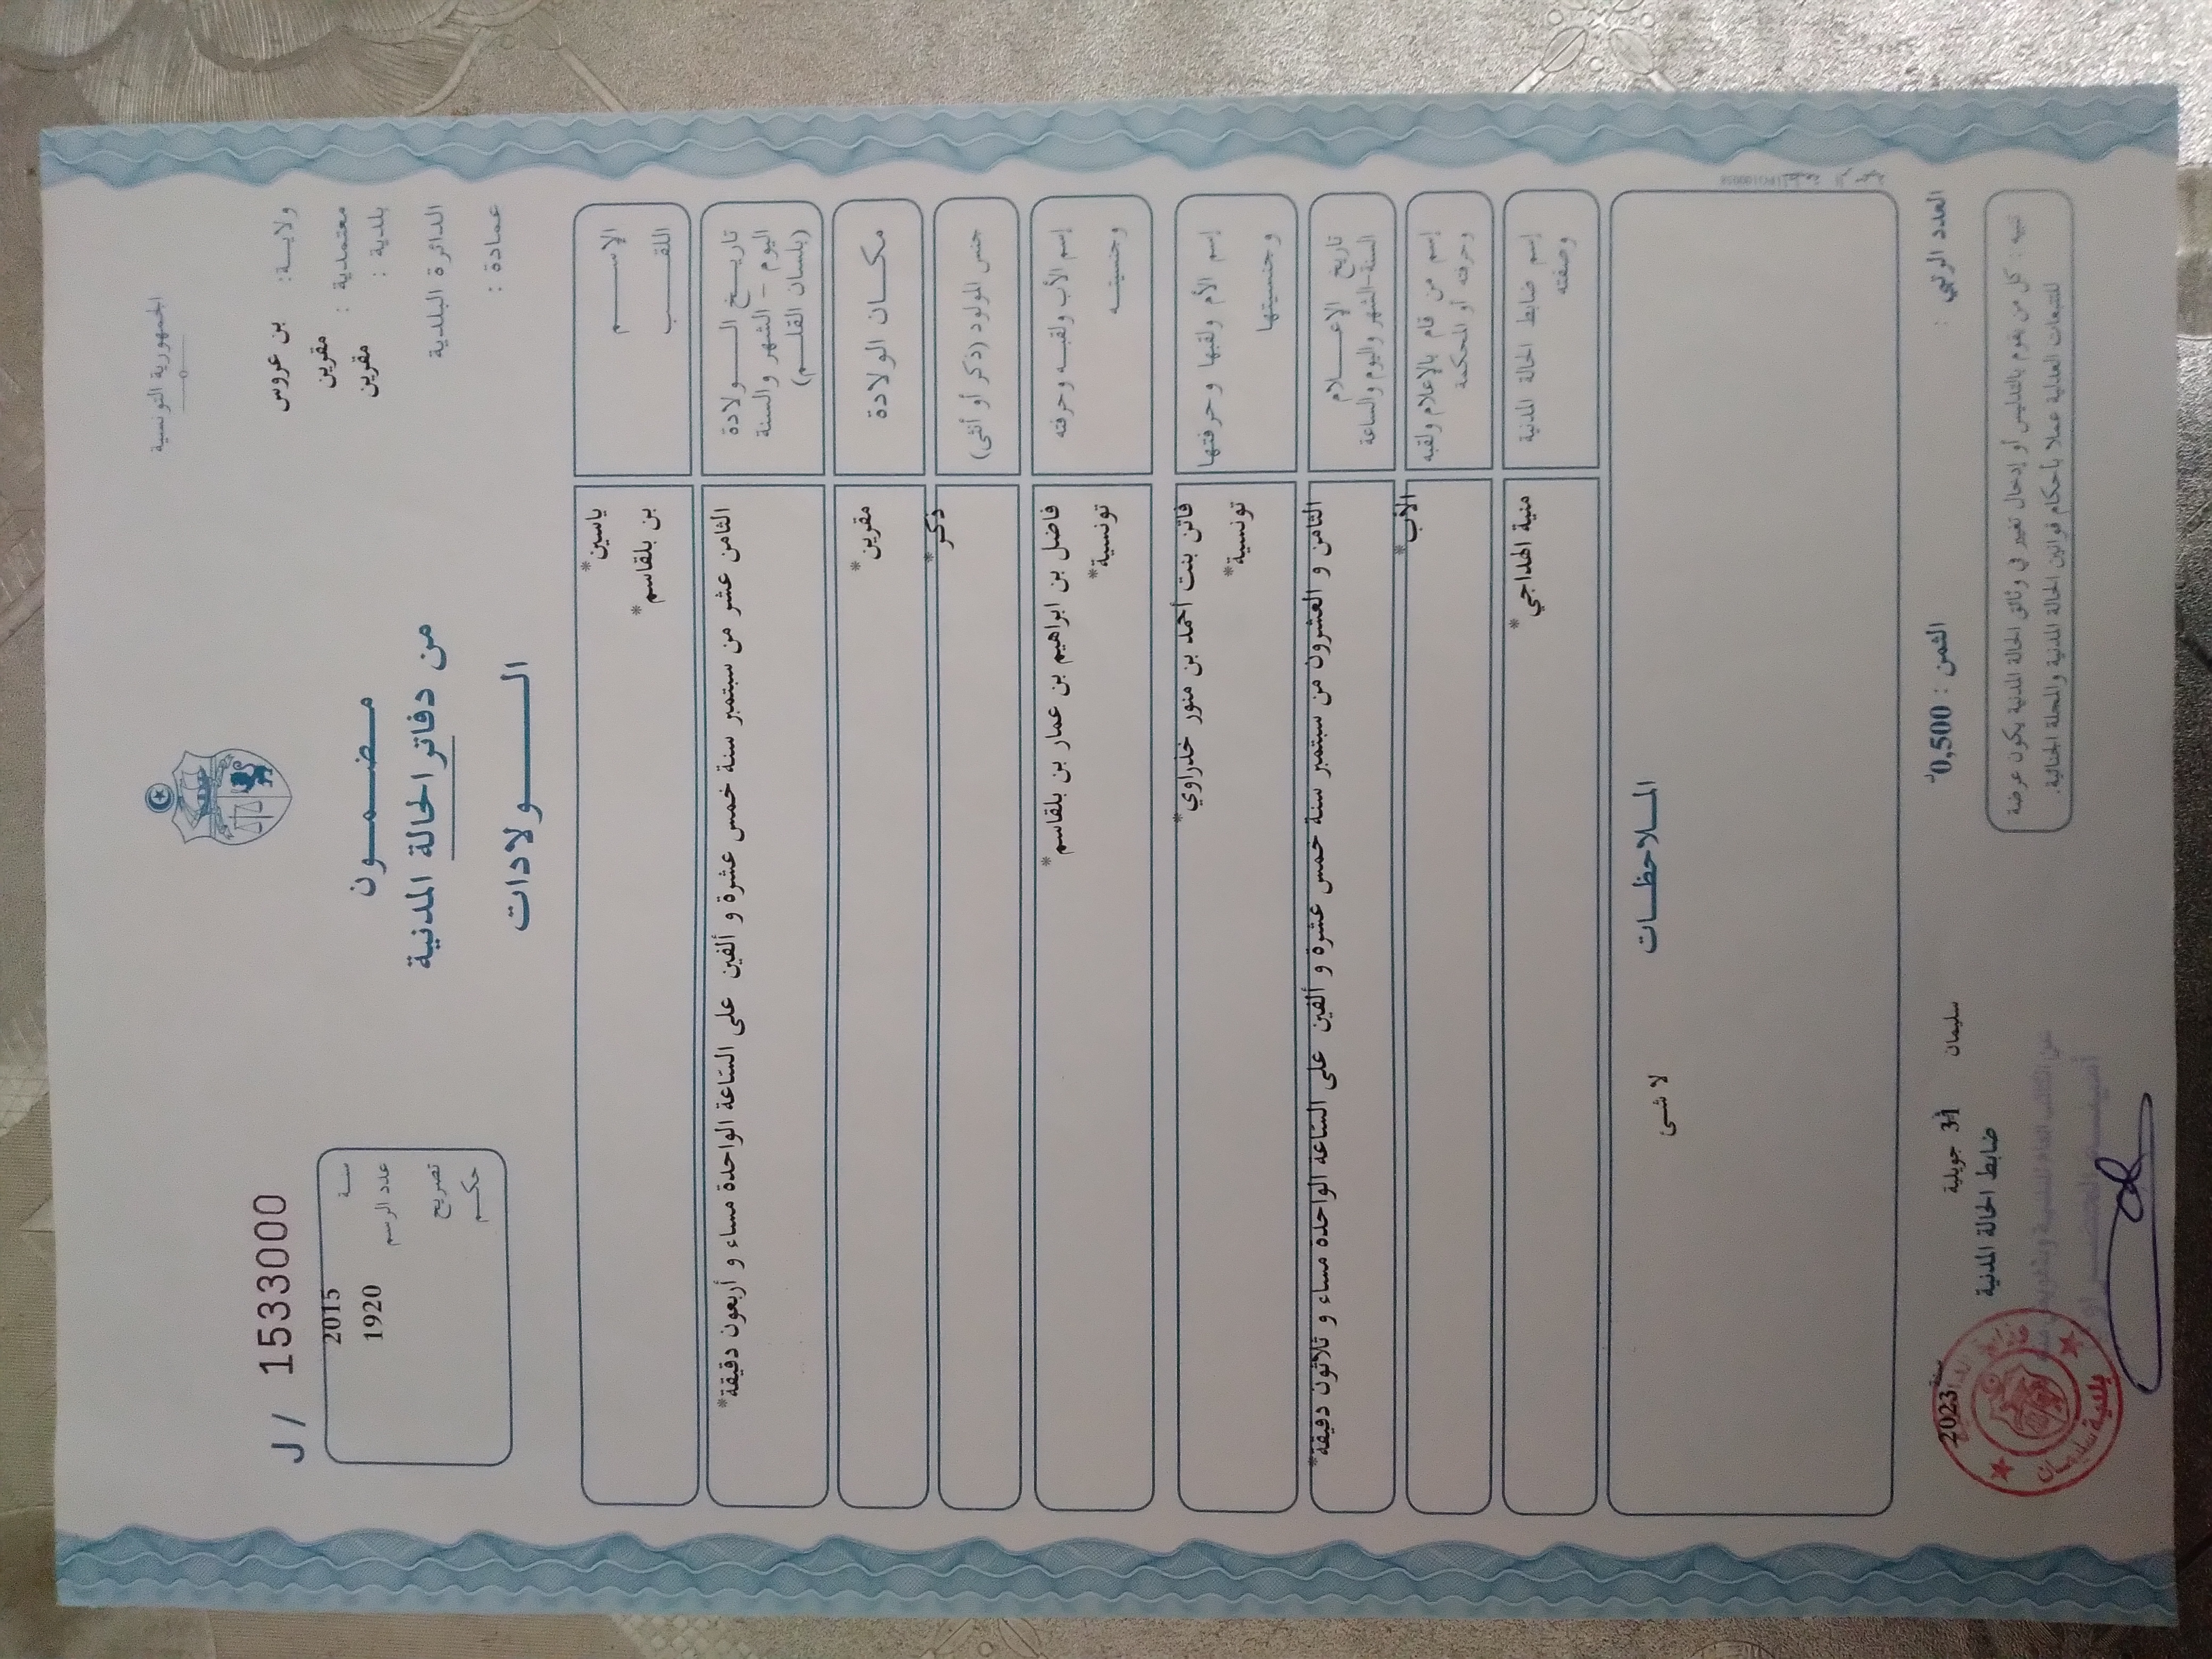 الجمهورية التونسية
ولايـــة: بن عروس
معتمدية : مقرين
بلدية : مقرين
الدائرة البلدية
عمادة :
J / 1533000
سنة 2015
عدد الرسم 1920
تصريح
حكم
مـضـمـــون
من دفاتر الحالة المدنية
الــــــولادات
الإســــــم
ياسين*
اللقـــــب
بن بلقاسم*
تاريـــخ الــــــولادة
اليوم – الشهر والسنة
(بلسان القلـــم)
الثامن عشر من سبتمبر سنة خمس عشرة و ألفين على الساعة الواحدة مساء و أربعون دقيقة*
مكـــان الولادة
مقرين*
جنس المولود (ذكر أو أنثى)
ذكر*
إسم الأب ولقبـــه وحرفته
فاضل بن ابراهيم بن عمار بن بلقاسم*
وجنسيتـــه
تونسية*
إسم الأم ولقبها وحرفتها
فاتن بنت أحمد بن منور خذراوي*
وجنسيتها
تونسية*
تاريخ الإعـــــلام
السنة-الشهر واليوم والساعة
الثامن و العشرون من سبتمبر سنة خمس عشرة و ألفين على الساعة الواحدة مساء و ثلاثون دقيقة*
إسم من قام بالإعلام ولقبه
وحرفته أو المحكمة
الأب*
إسم ضابط الحالة المدنية
وصفته
منية الهداجي*
المـــلاحظـــات
لا شئ
العدد الرتبي :
الثمن : 0,500د
سليمان
31 جويلية
سنة 2023
ضابط الحالة المدنية
بلدية سليمان
تنبيه : كل من يقوم بالتدليس أو إدخال تغيير في وثائق الحالة المدنية يكون عرضة
للتتبعات العدلية عملا بأحكام قوانين الحالة المدنية والمجلة الجنائية.